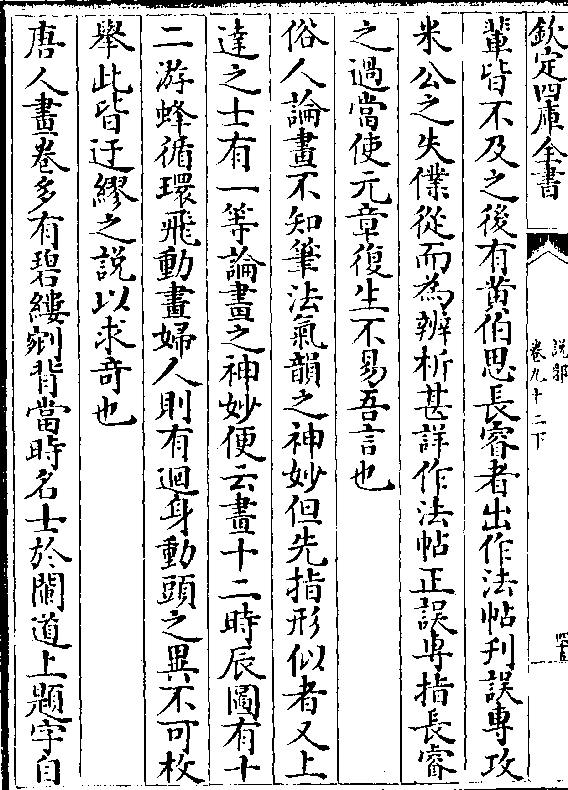 欽定四庫全書
說郛
卷九十二下
輩皆不及之後有黄伯思長睿者出作法帖刋誤專攻
米公之失僕從而為辨析甚詳作法帖正誤専指長睿
之過當使元章復生不易吾言也
俗人論畫不知筆法氣韻之神妙但先指形似者又上
達之士有一等論畫之神妙便云畫十二時辰圖有十
二游蜂循環飛動畫婦人則有迴身動頭之異不可枚
舉此皆迂繆之説以求竒也
唐人畫卷多有碧縷剜背當時名士於闌道上題字自